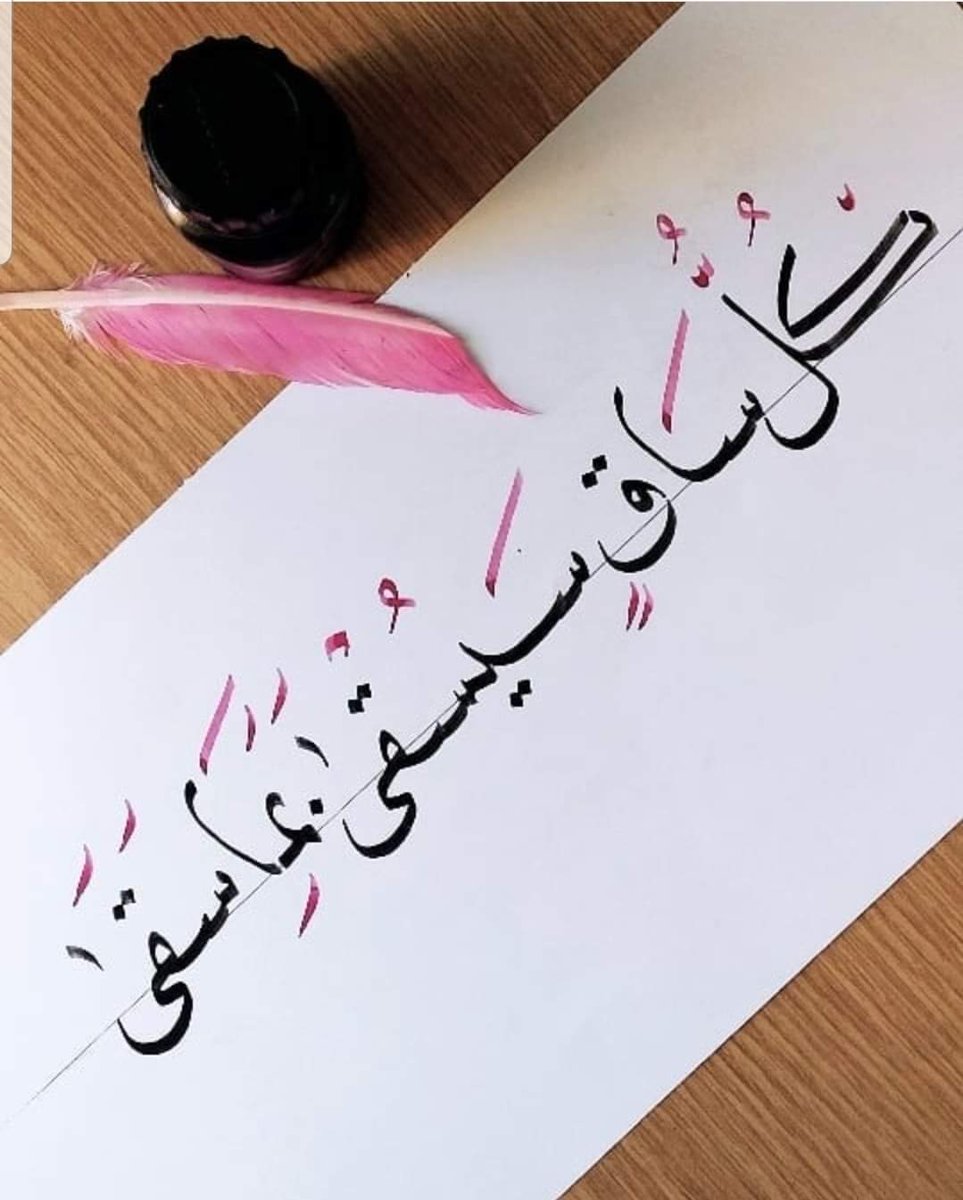 كُلُّ سَاقٍ سَيُسْقَىٰ بِمَا سَقَىٰ